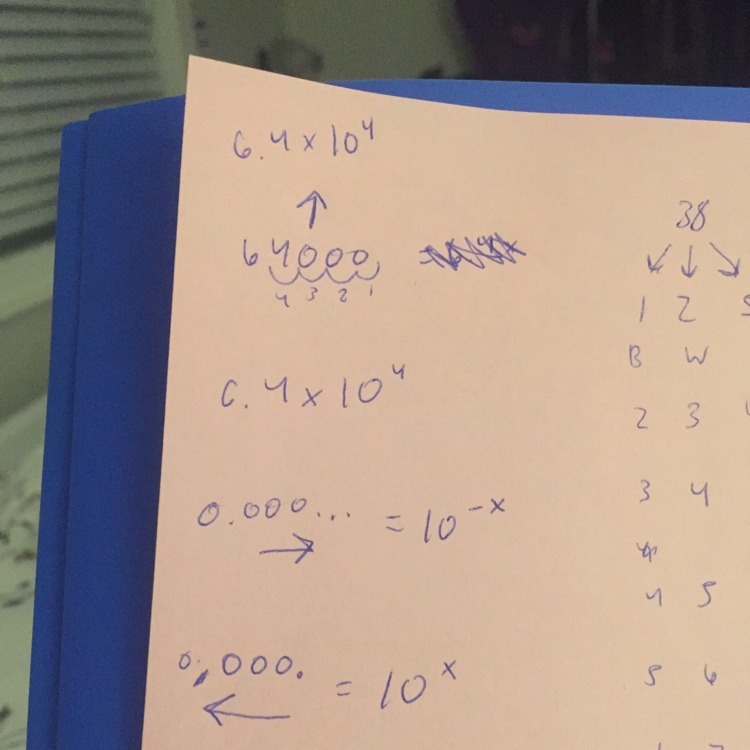 6.4 x 10⁴
↑
64000.
4 3 2 1
6.4 x 10⁴
0.000... = 10⁻ˣ
→
0,000. = 10ˣ
←
38
↙ ↓ ↘
1 2
B W
2 3
3 4
4 5
5 6